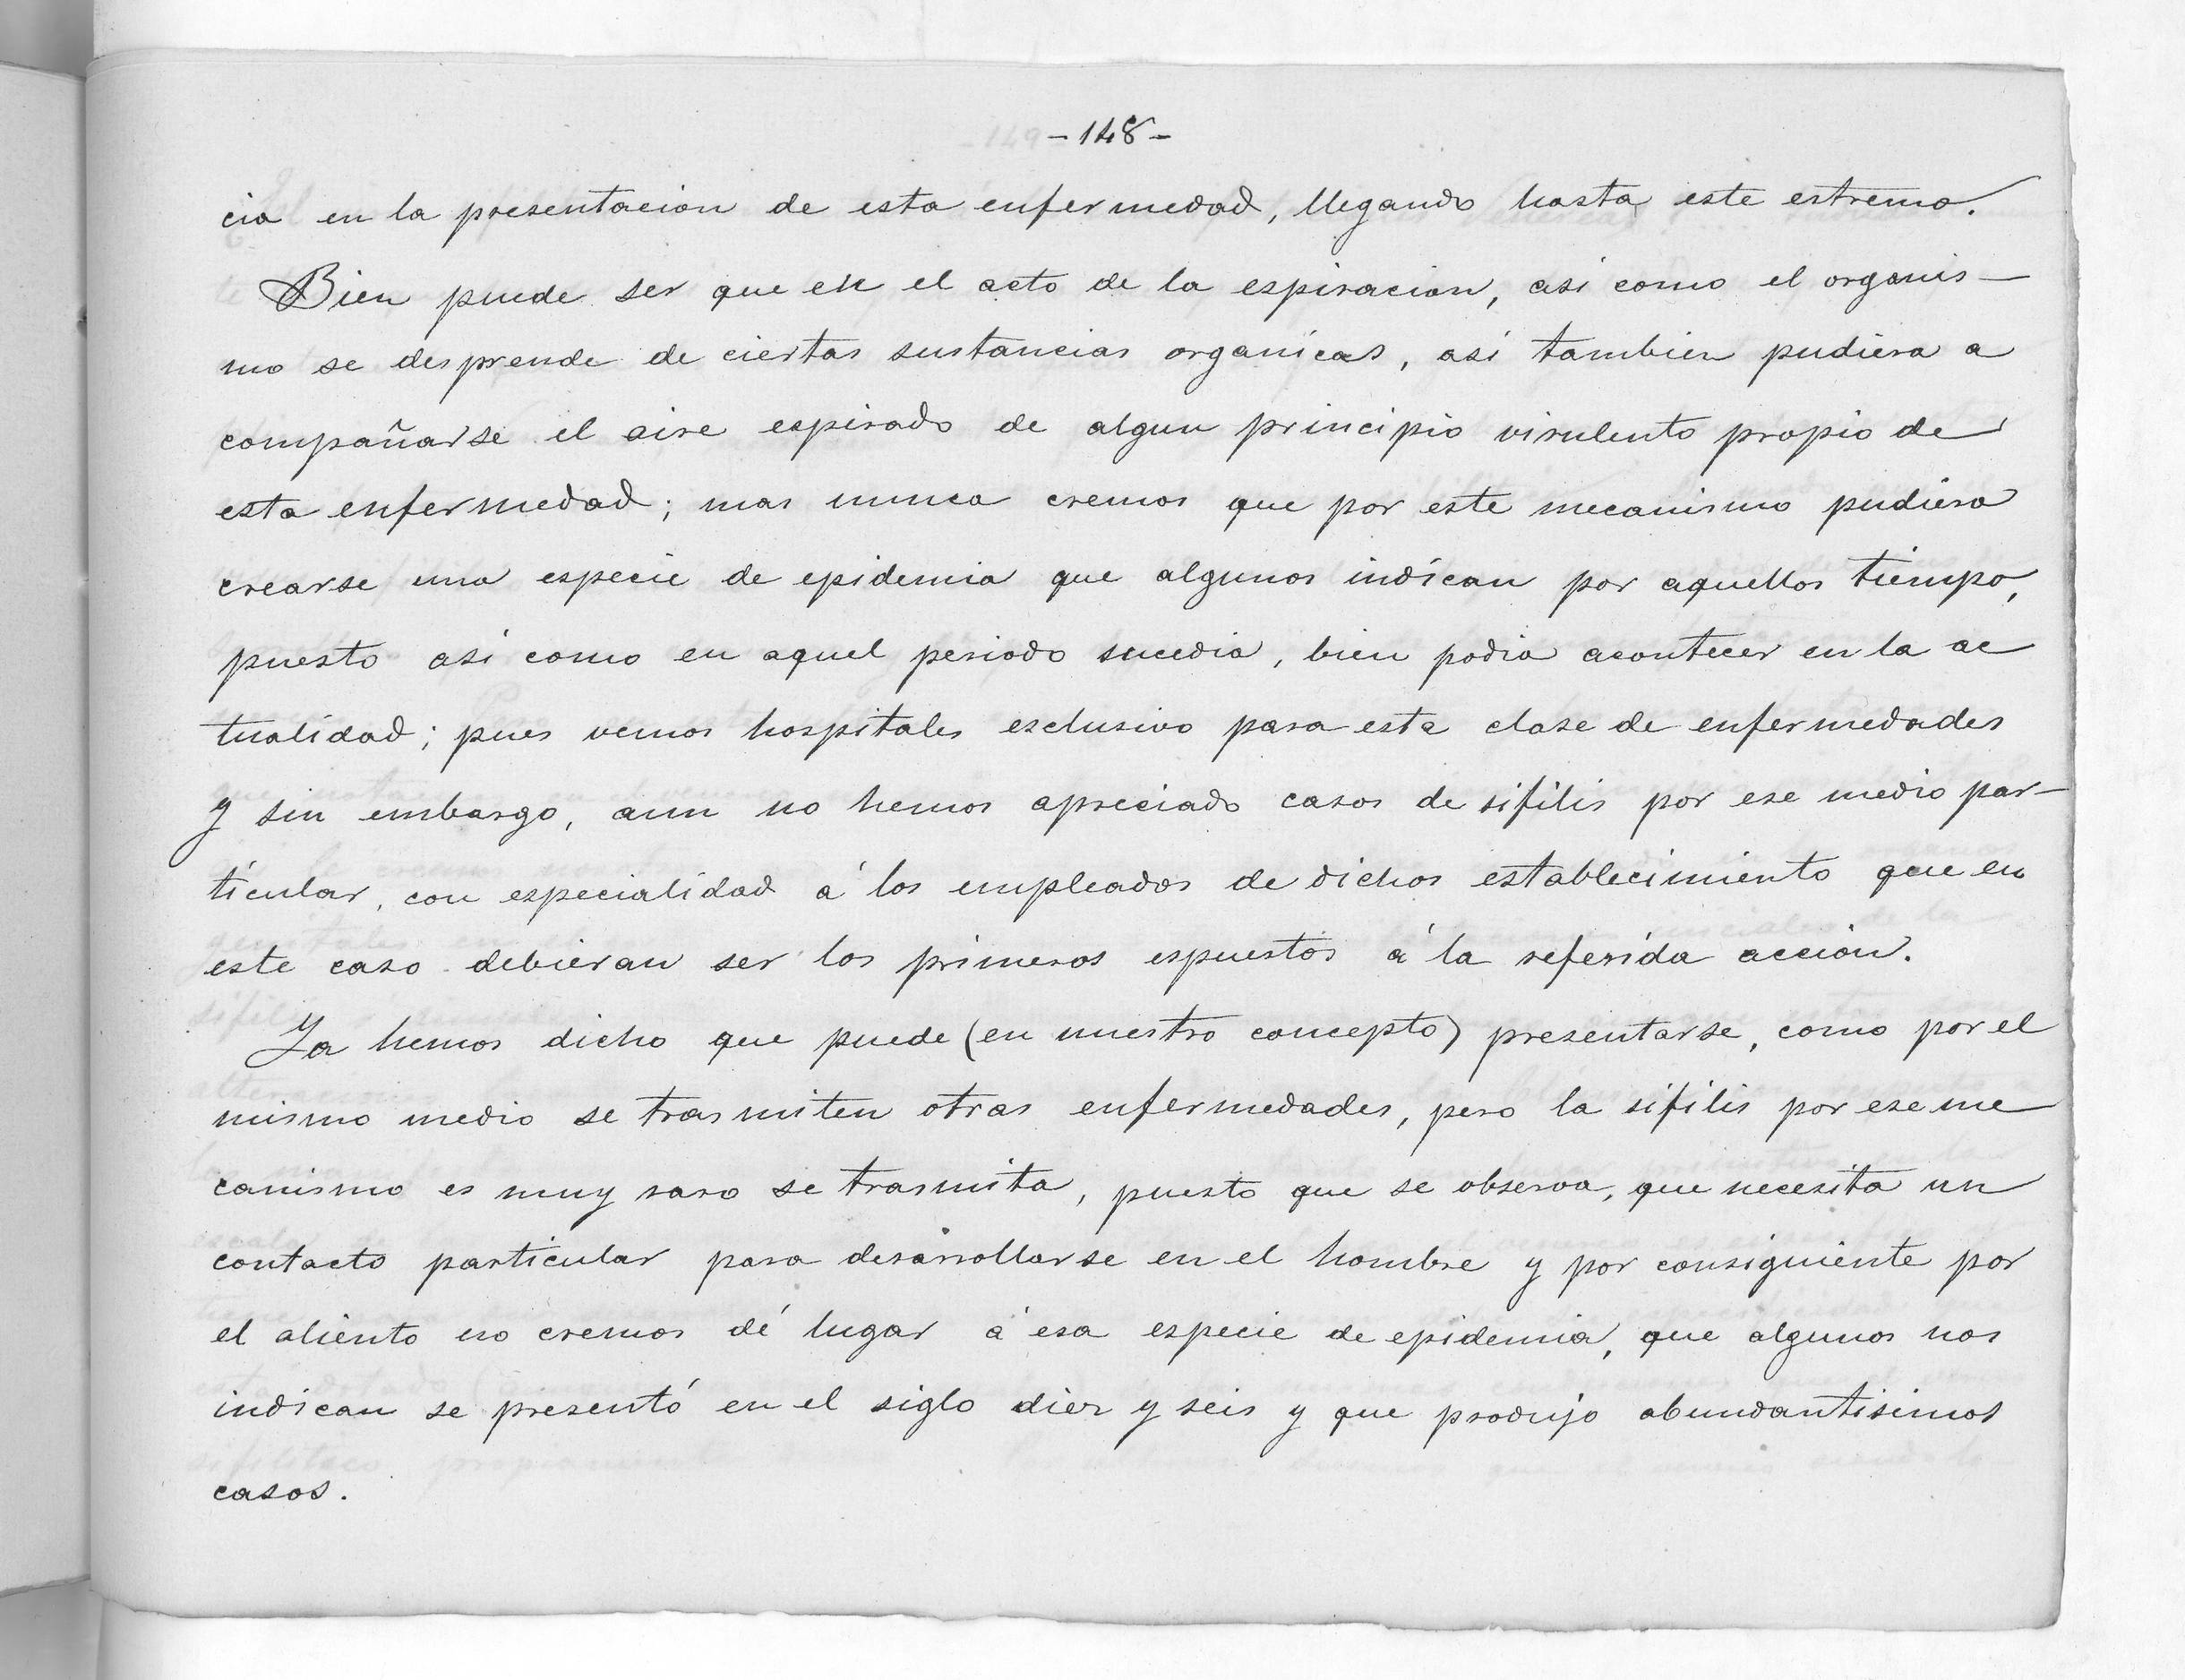 -148-
cia en la presentacion de esta enfermedad, llegando hasta este estremo.
Bien puede ser que en el acto de la espiracion, asi como el organis-
mo se desprende de ciertas sustancias organicas, asi tambien pudiera a
compañarse el aire espirado de algun principio virulento propio de
esta enfermedad; mas nunca cremos que por este mecanismo pudiera
crearse una especie de epidemia que algunos indican por aquellos tiempo,
puesto asi como en aquel periodo sucedia, bien podia acontecer en la ac
tualidad; pues vemos hospitales esclusivo para esta clase de enfermedades
y sin embargo, aun no hemos apreciado casos de sifilis por ese medio par-
ticular, con especialidad á los empleados de dichos establecimiento que en
este caso debieran ser los primeros espuestos á la referida acción.
Ya hemos dicho que puede (en nuestro concepto) presentarse, como por el
mismo medio se trasmiten otras enfermedades, pero la sifilis por ese me
canismo es muy raro se trasmita, puesto que se observa, que necesita un
contacto particular para desarrollarse en el hombre y por consiguiente por
el aliento no cremos dé lugar á esa especie de epidemia, que algunos nos
indican se presentó en el siglo diez y seis y que produjo abundantisimos
casos.